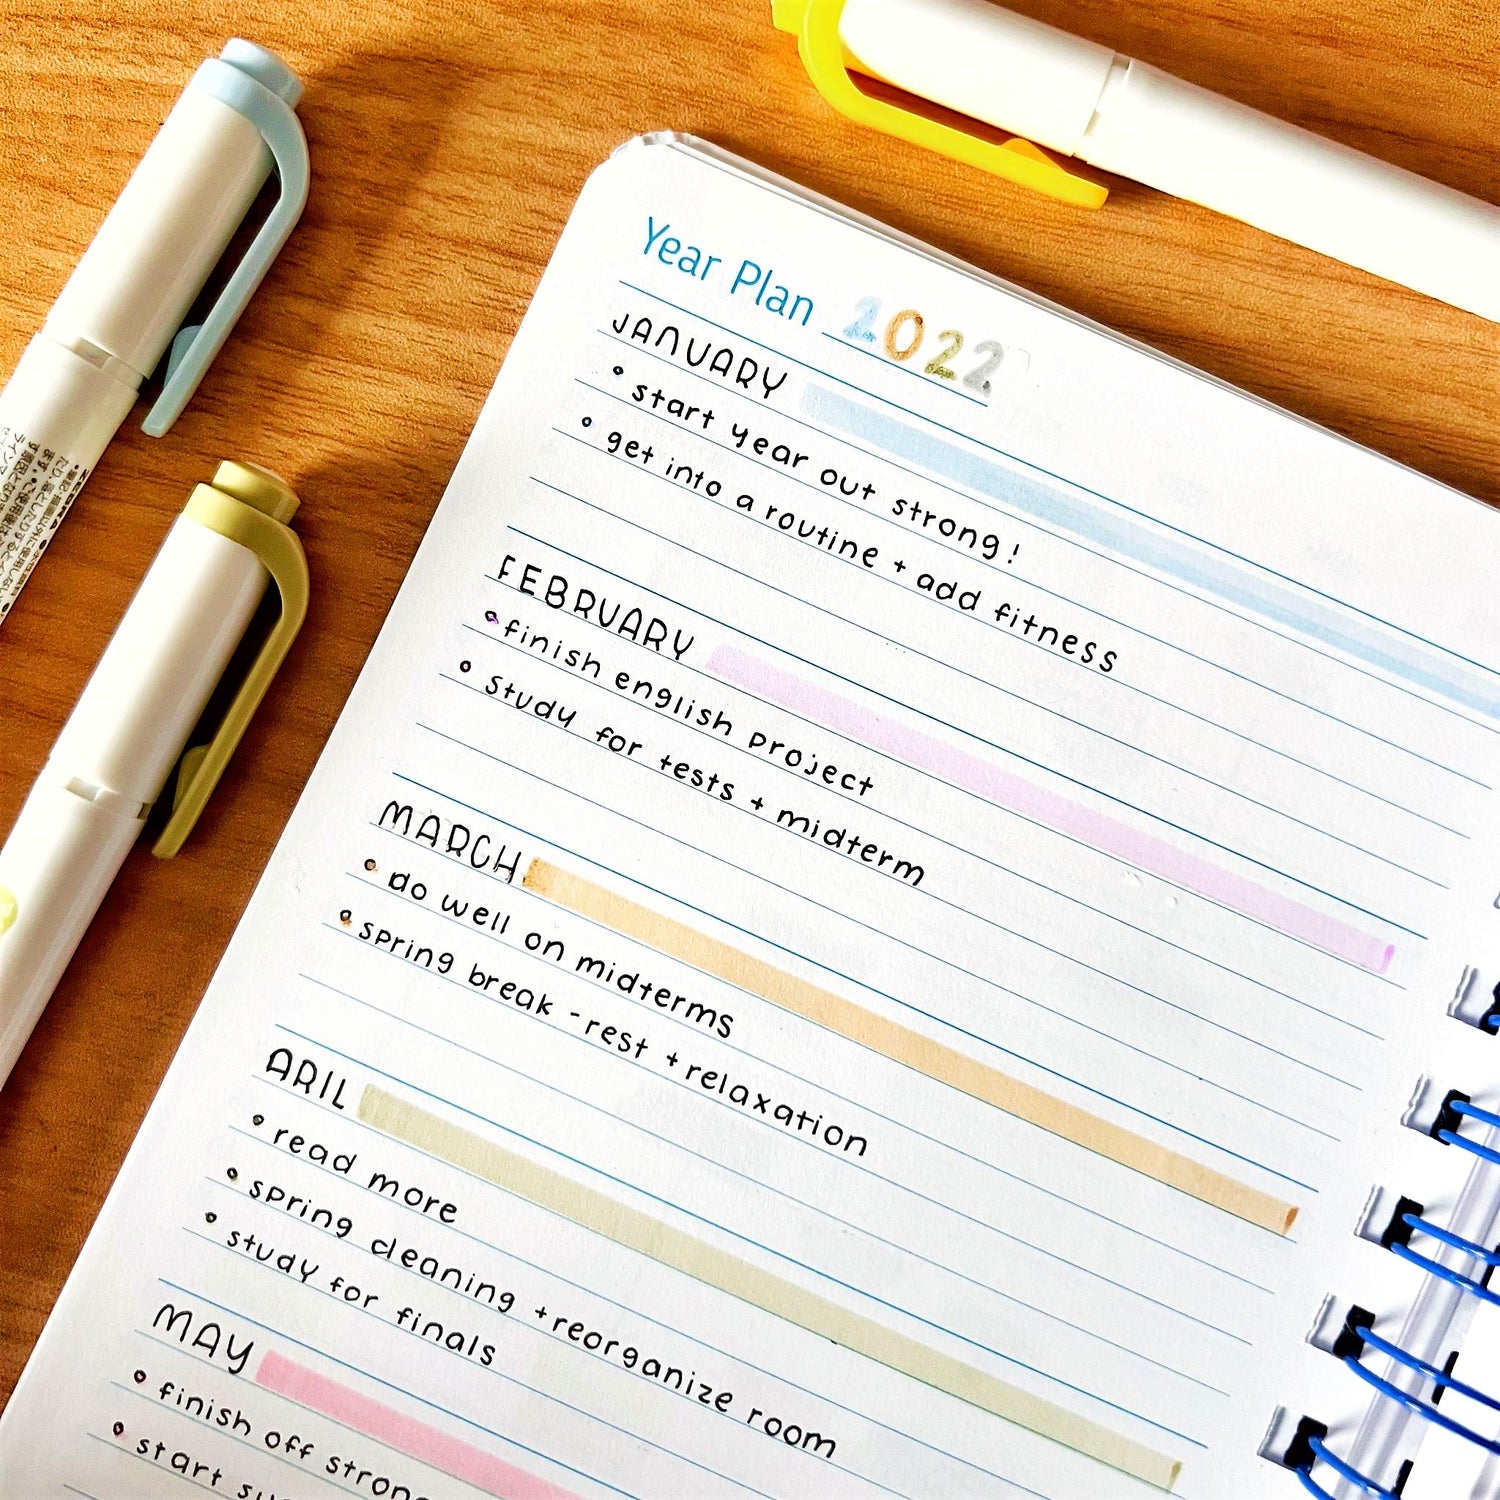 Year Plan 2022
JANUARY
• start year out strong!
• get into a routine + add fitness
FEBRUARY
• finish english project
• study for tests + midterm
MARCH
• do well on midterms
• spring break - rest + relaxation
ARIL
• read more
• spring cleaning + reorganize room
• study for finals
MAY
• finish off strong
• start